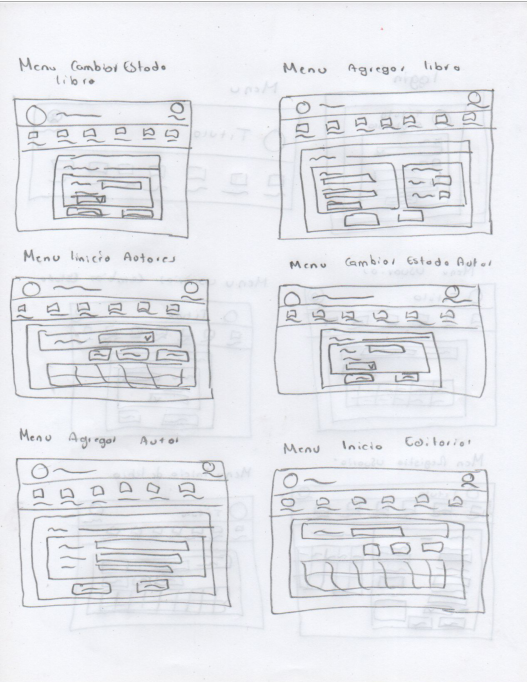 Menu Cambiar Estado
libro
Menu Agregar libro
Menu Iinicio Autores
Menu Cambiar Estado Autor
Menu Agregar Autor
Menu Inicio Editorial